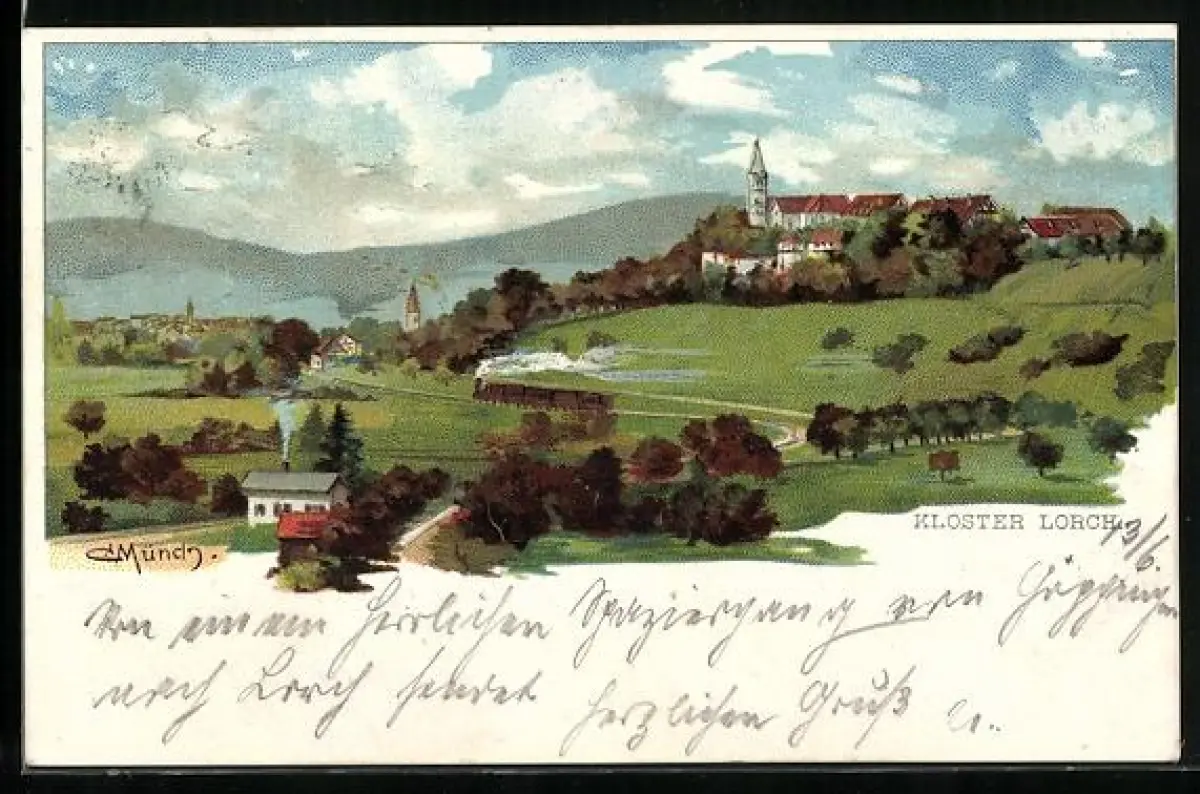 C Münch.
KLOSTER LORCH.
13/6.
Von einem herrlichen Spaziergang von Göppingen
nach Lorch sendet herzlichen Gruß